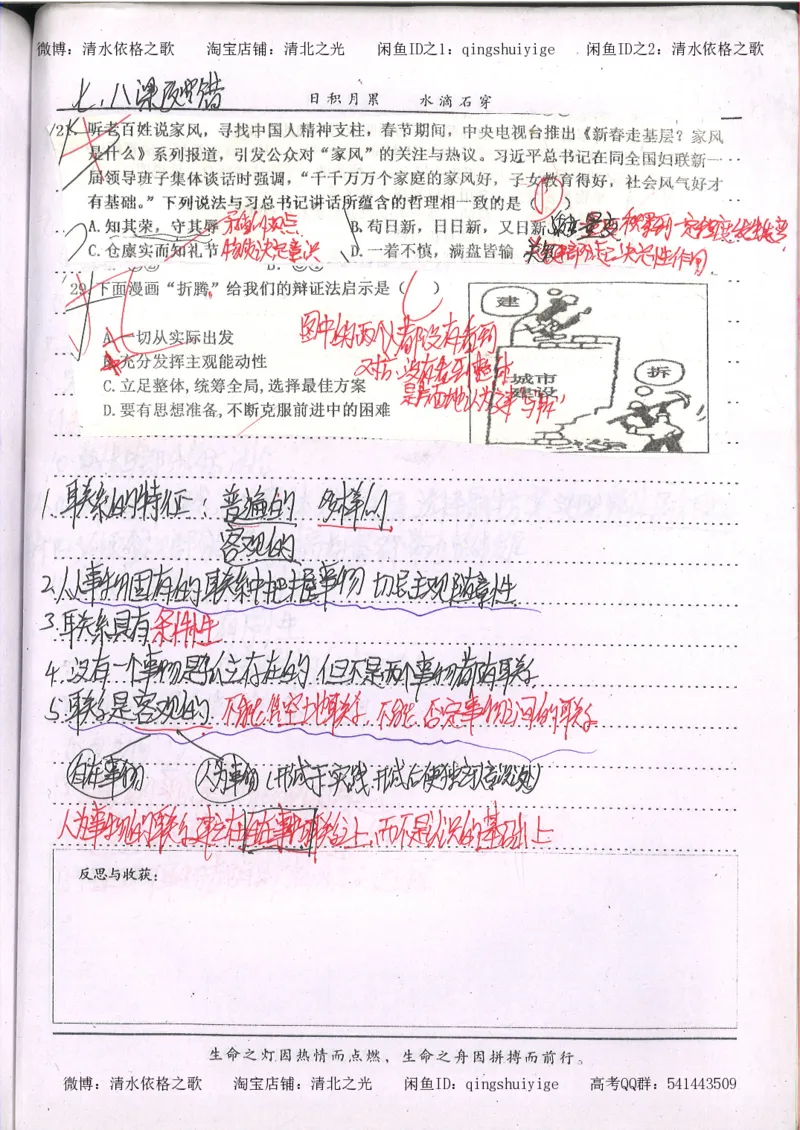 微博：清水依格之歌 淘宝店铺：清北之光 闲鱼ID之1：qingshuiyige 闲鱼ID之2：清水依格之歌
七、八课
日积月累 水滴石穿
听老百姓说家风，寻找中国人精神支柱，春节期间，中央电视台推出《新春走基层？家风
是什么》系列报道，引发公众对“家风”的关注与热议。习近平总书记在同全国妇联新一
届领导班子集体谈话时强调，“千千万万个家庭的家风好，子女教育得好，社会风气好才
有基础。”下列说法与习总书记讲话所蕴含的哲理相一致的是（ ）
A.知其荣，守其辱 矛盾 观点 B.苟日新，日日新，又日新 量变积累到一定程度
C.仓廪实而知礼节 物质决定意识 D.一着不慎，满盘皆输 关键部分 决定性作用
29.下面漫画“折腾”给我们的辩证法启示是（ ）
建
A.一切从实际出发
图中的两个人都没有看到
B.充分发挥主观能动性
对方，没有看到整体
拆
C.立足整体,统筹全局,选择最佳方案
城市
建设
D.要有思想准备,不断克服前进中的困难
1.联系的特征：普遍的 多样的
客观的
2.从事物固有的联系中把握事物 切忌主观随意性
3.联系具有条件性
4.没有一个事物是孤立存在的 但不是两个事物都有联系
5.联系是客观的 不能凭空地联系，不能否定事物之间的联系
自在事物 人为事物（形成于实践，形成后便独立于意识之外）
人为事物的联系建立在自在事物联系之上，而不是认识的基础上
反思与收获：
生命之灯因热情而点燃、生命之舟因拼搏而前行。
微博：清水依格之歌 淘宝店铺：清北之光 闲鱼ID：qingshuiyige 高考QQ群：541443509